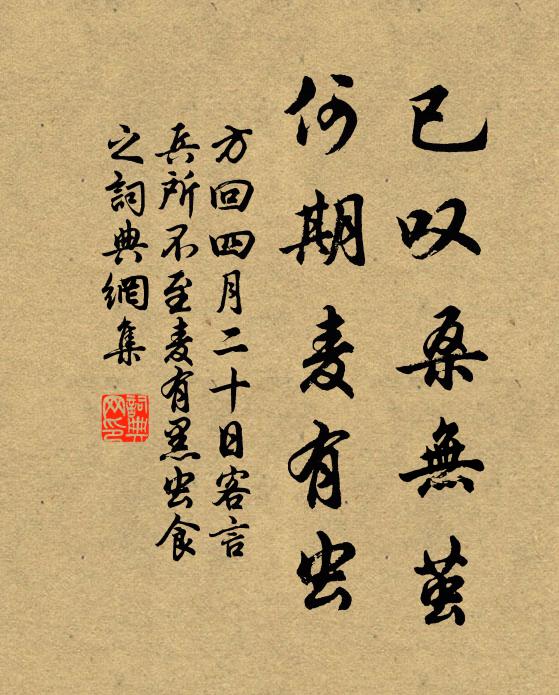 已叹桑無茧
何期麦有虫
方回四月二十日客言
兵所不至麦有黑虫食
之詞典網集
詞典
网印